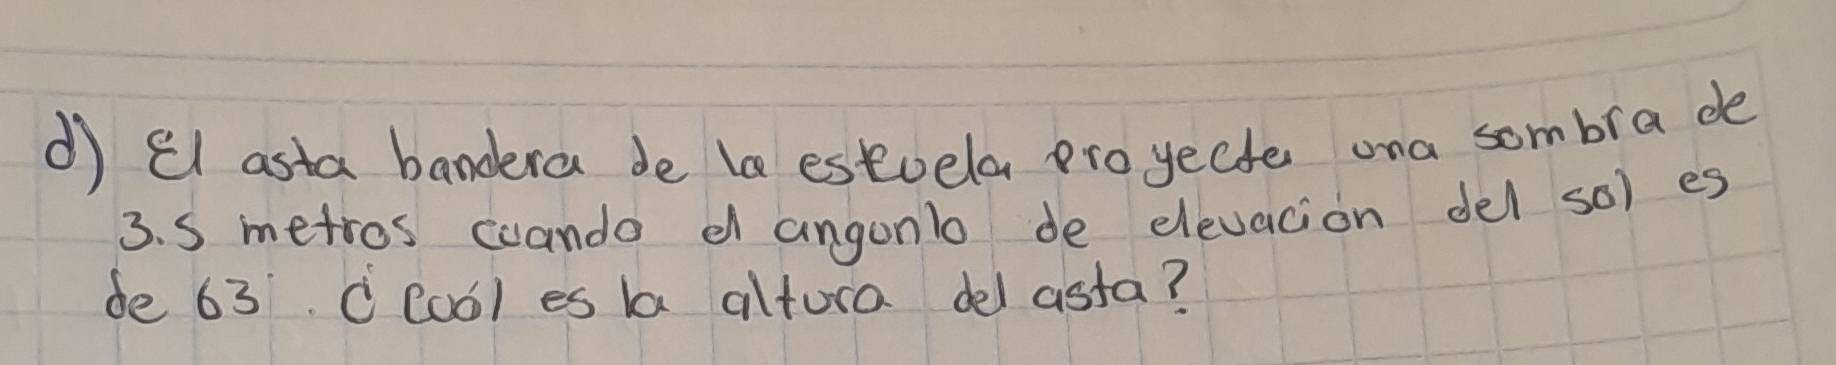 d) El asta bandera de la escuela proyecta una sombra de
3.5 metros cuando el angunlo de elevación del sol es
de 63°. ¿Cuál es la altura del asta?